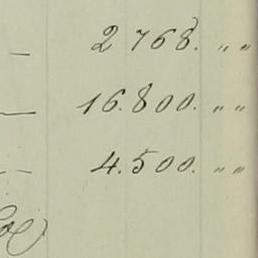 — 2 768. " "
— 16.800. " "
— 4.500. " "